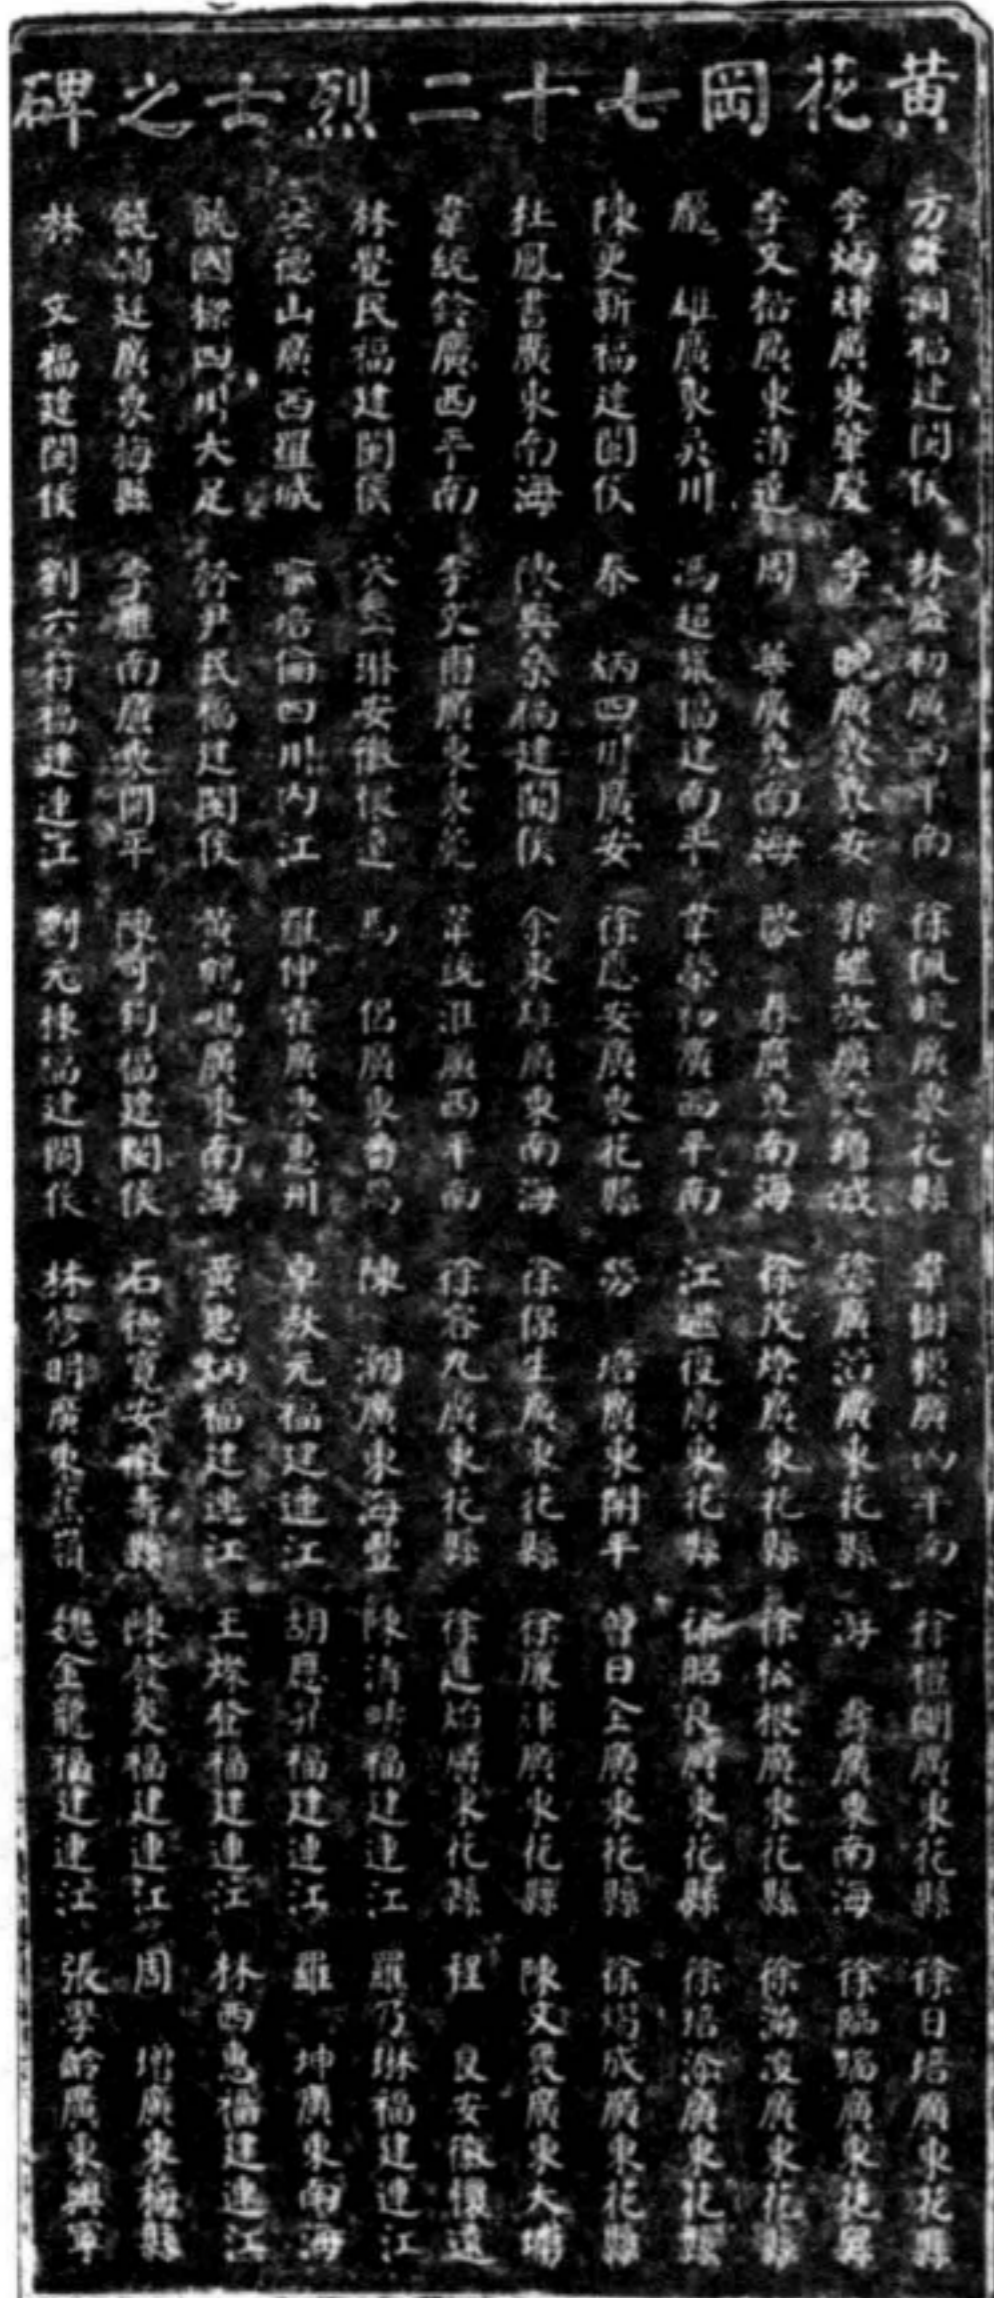 黃花岡七十二烈士之碑
方聲洞福建閩侯 林盛初廣西平南 徐佩旒廣東花縣 韋樹模廣西平南 徐禮明廣東花縣 徐日培廣東花縣
李炳輝廣東肇慶 李 晚廣東東安 郭繼枚廣東增城 徐廣滔廣東花縣 游 壽廣東南海 徐臨端廣東花縣
李文楷廣東清遠 周 華廣東南海 春廣東南海 徐茂燎廣東花縣 徐松根廣東花縣 徐滿凌廣東花縣
龐 雄廣東吳川 馮超驤福建南平 韋榮初廣西平南 江繼復廣東花縣 徐昭良廣東花縣 徐培添廣東花縣
陳更新福建閩侯 秦 炳四川廣安 徐應安廣東花縣 勞 培廣東開平 曾日全廣東花縣 徐熠成廣東花縣
杜鳳書廣東南海 陳與燊福建閩侯 余東雄廣東南海 徐保生廣東花縣 徐廉輝廣東花縣 陳文褒廣東大埔
韋統鈴廣西平南 李文甫廣東東莞 韋統淮廣西平南 徐容九廣東花縣 徐進炲廣東花縣 程 良安徽懷遠
林覺民福建閩侯 宋玉琳安徽懷遠 馬 侶廣東番禺 陳 潮廣東海豐 陳清疇福建連江 羅乃琳福建連江
李德山廣西羅城 喻培倫四川內江 羅仲霍廣東惠州 卓秋元福建連江 胡應昇福建連江 羅 坤廣東南海
饒國樑四川大足 林尹民福建閩侯 黃鶴鳴廣東南海 黃忠炳福建連江 王燦登福建連江 林西惠福建連江
饒輔廷廣東梅縣 李雁南廣東開平 陳可鈞福建閩侯 石德寬安徽壽縣 陳發炎福建連江 周 增廣東梅縣
林 文福建閩侯 劉六符福建連江 劉元棟福建閩侯 林修明廣東蕉嶺 魏金龍福建連江 張學齡廣東興寧